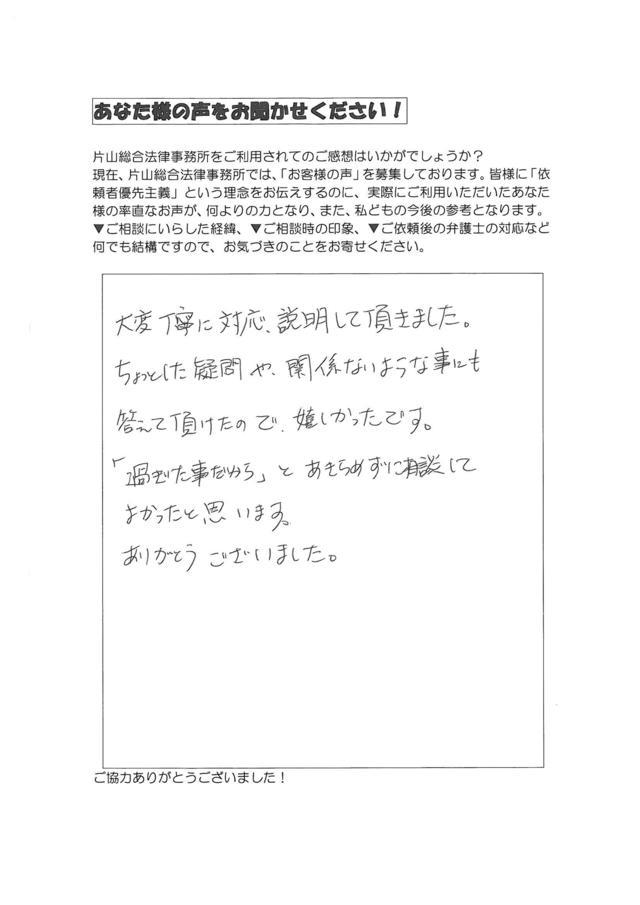 あなた様の声をお聞かせください！
片山総合法律事務所をご利用されてのご感想はいかがでしょうか？
現在、片山総合法律事務所では、「お客様の声」を募集しております。皆様に「依
頼者優先主義」という理念をお伝えするのに、実際にご利用いただいたあなた
様の率直なお声が、何よりの力となり、また、私どもの今後の参考となります。
▼ご相談にいらした経緯、▼ご相談時の印象、▼ご依頼後の弁護士の対応など
何でも結構ですので、お気づきのことをお寄せください。
大変丁寧に対応、説明して頂きました。
ちょっとした疑問や、関係ないような事にも
答えて頂けたので、嬉しかったです。
「過ぎた事だから」と あきらめずに相談して
よかったと思います。
ありがとうございました。
ご協力ありがとうございました！